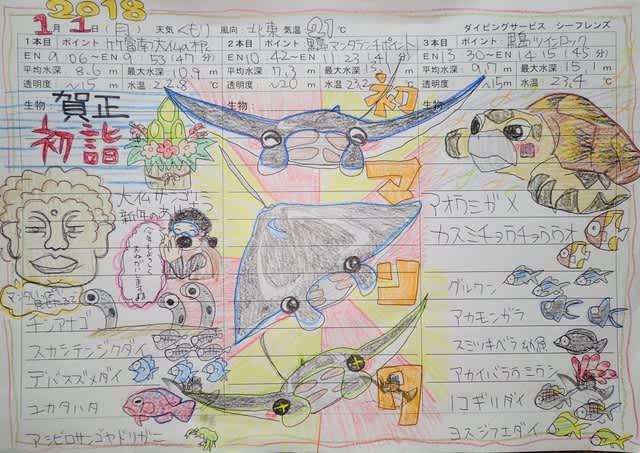 2018
1月1日(月) 天気 くもり 風向: 北東 気温 21℃ ダイビングサービス シーフレンズ
1本目 ポイント 竹富南 大仏サンゴ
2本目 ポイント 黒島マンタランチポイント
3本目 ポイント 黒島ツインロック
EN 9:06 〜 EN 9:53 (47分)
EN 10:42 〜 EN 11:23 (41分)
EN 13:30 〜 EN 14:15 (45分)
平均水深 8.6m 最大水深
平均水深 7.3m 最大水深
平均水深 最大水深 15.1m
透明度 〜15m 水温
透明度 〜20m 水温
透明度 〜15m 水温 23.4℃
生物:
生物:
賀正
初詣
大仏サンゴ
新年の
今年もよろしく
おねがいします
チンアナゴ
スカシテンジクダイ
デバスズメダイ
ユカタハタ
アシビロサンゴヤドリガニ
初
マ
ン
タ
アオウミガメ
カスミチョウチョウウオ
グルクン
アカモンガラ
スミツキベラ幼魚
アカイバラウミウシ
ノコギリダイ
ヨスジフエダイ